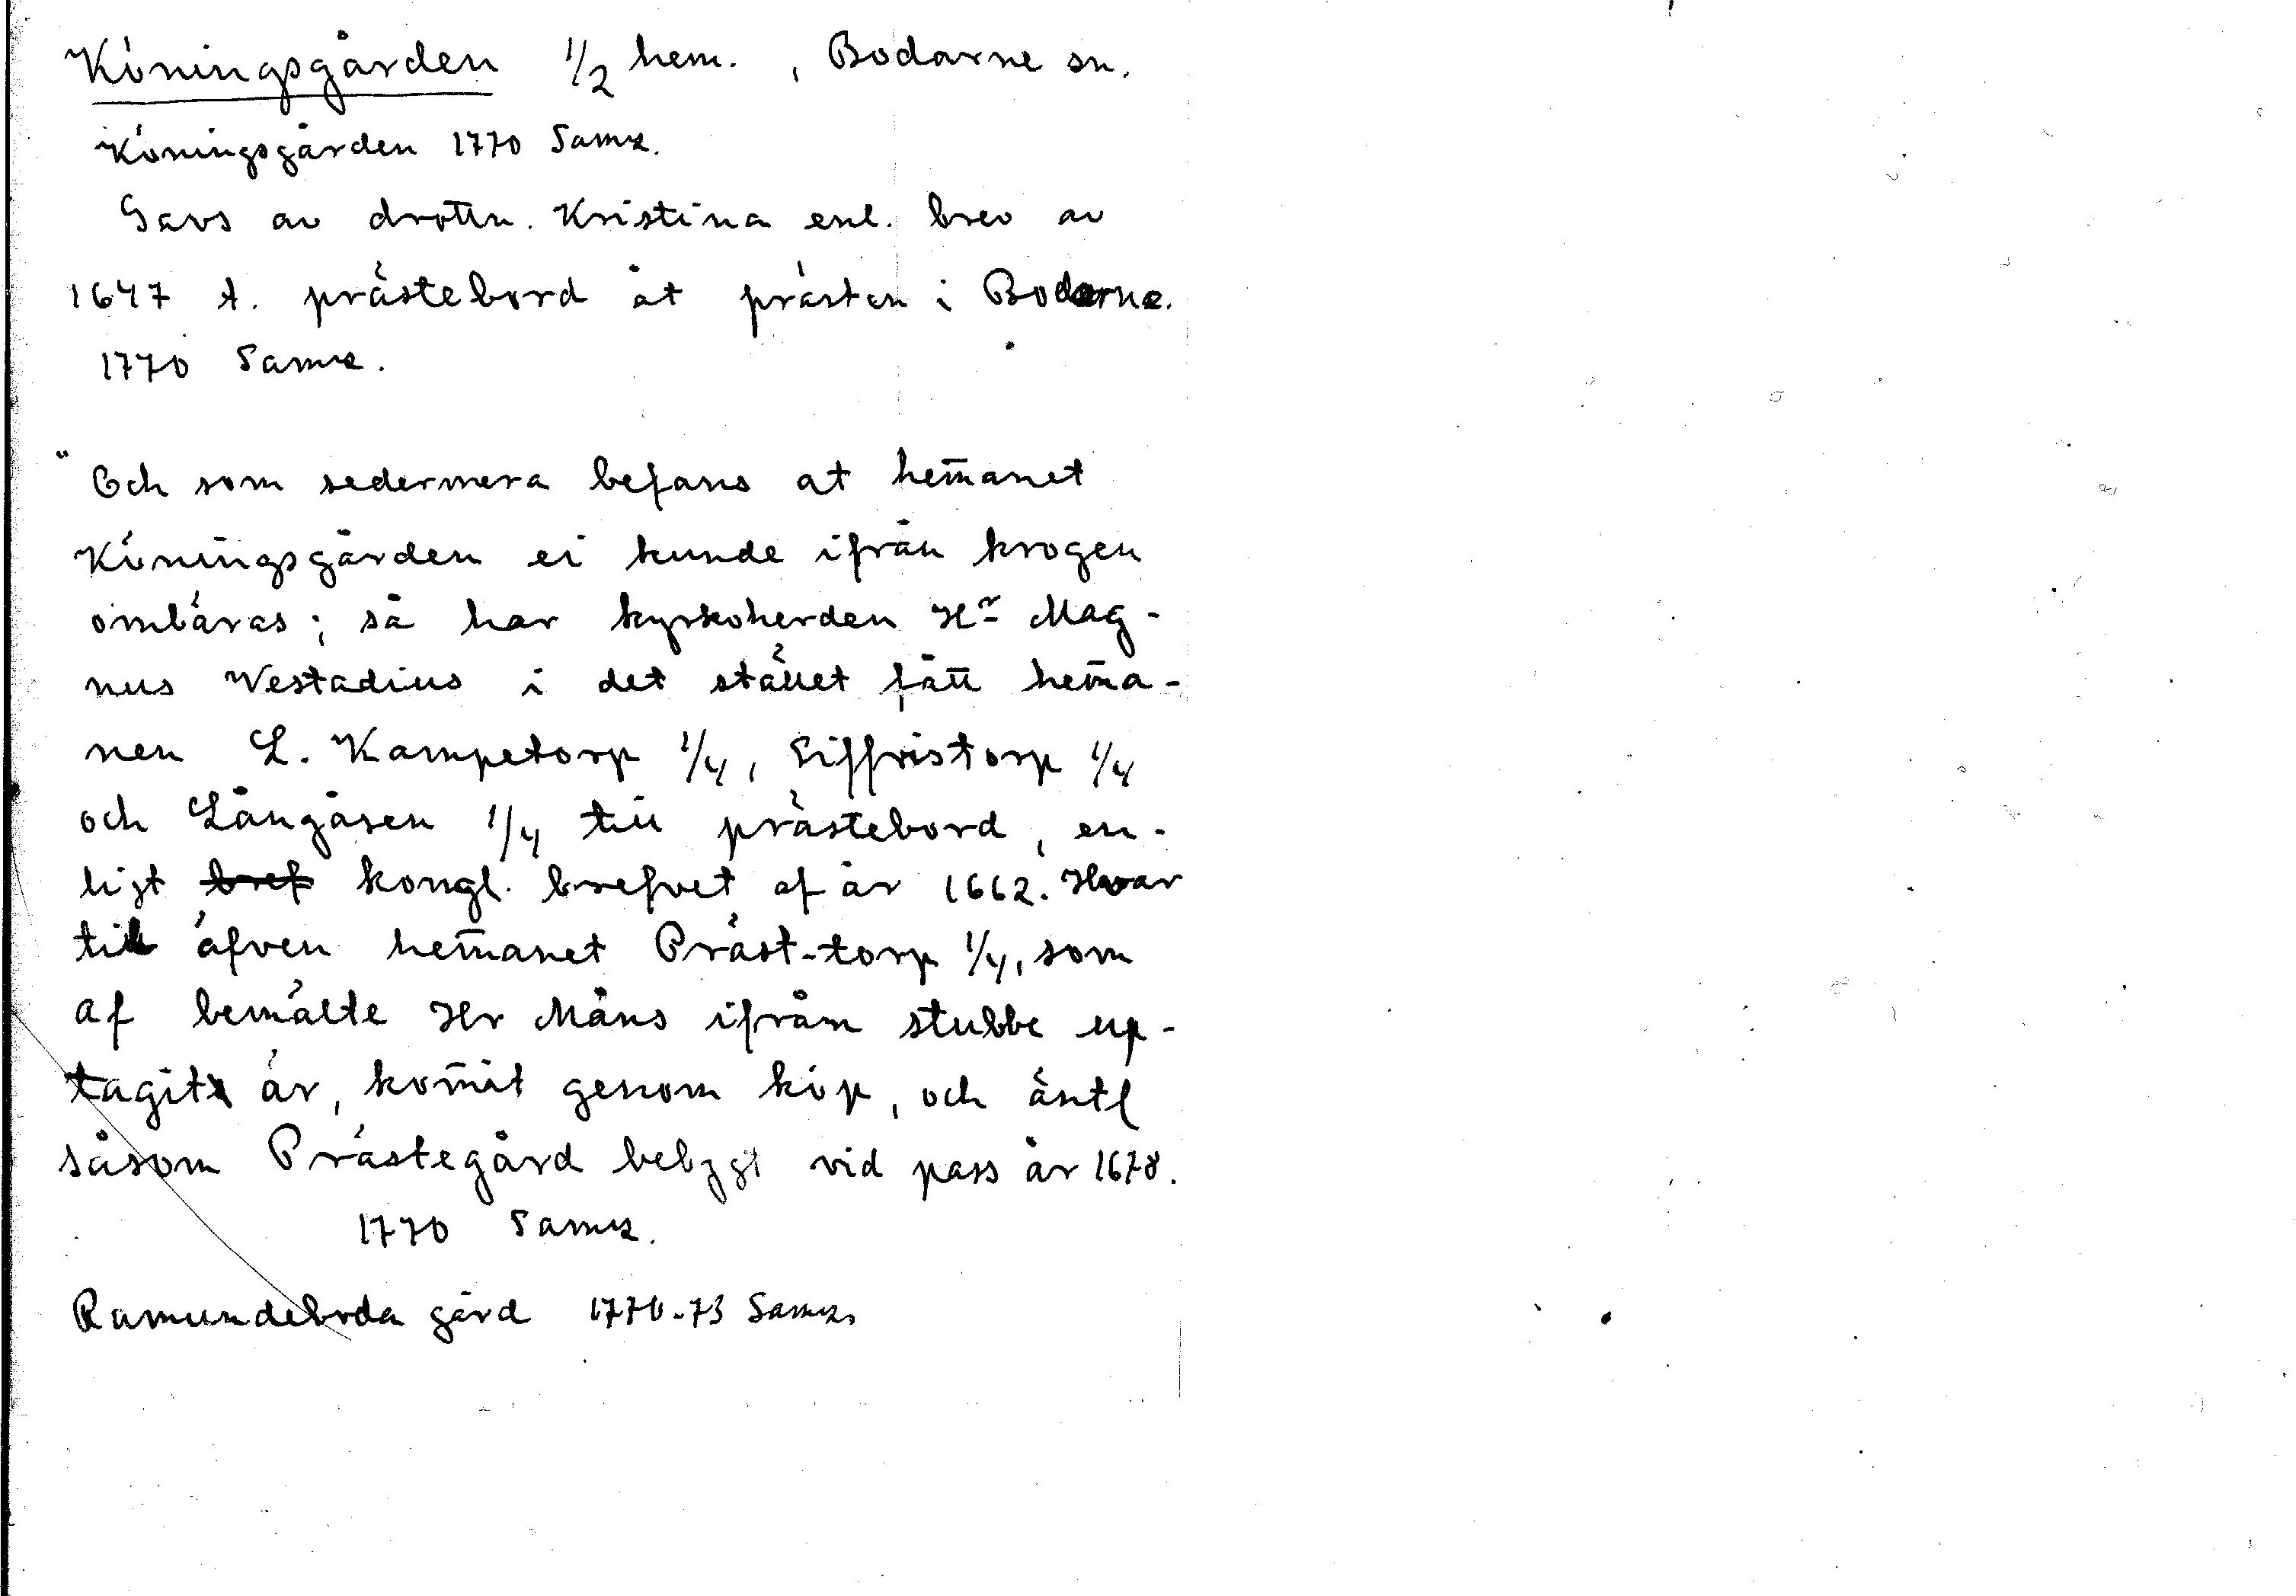 Köningsgården 1/2 hem. , Bodarne sn.
Köningsgården 1770 Samz.
Gavs av drottn. Kristina enl. brev av
1647 t. prästebord åt prästen i Bodarne.
1770 Samz.
"Och som sedermera befans at hem̄anet
Köningsgården ei kunde ifrån krogen
ombäras; så har kyrkoherden Hr Mag-
nus Westadius i det stället fått hem̄a-
nen L. Kampetorp 1/4, Siffristorp 1/4
och Långåsen 1/4 till prästebord, en-
ligt bref kongl. brefvet af år 1662. Hvar
till äfven hem̄anet Präst-torp 1/4, som
af bemälte Hr Måns ifrån stubbe up-
tagit är, kom̄it genom köp, och äntl
såsom Prästegård bebygt vid pass år 1678.
1770 Samz.
Ramundeboda gård 1770-73 Samz.